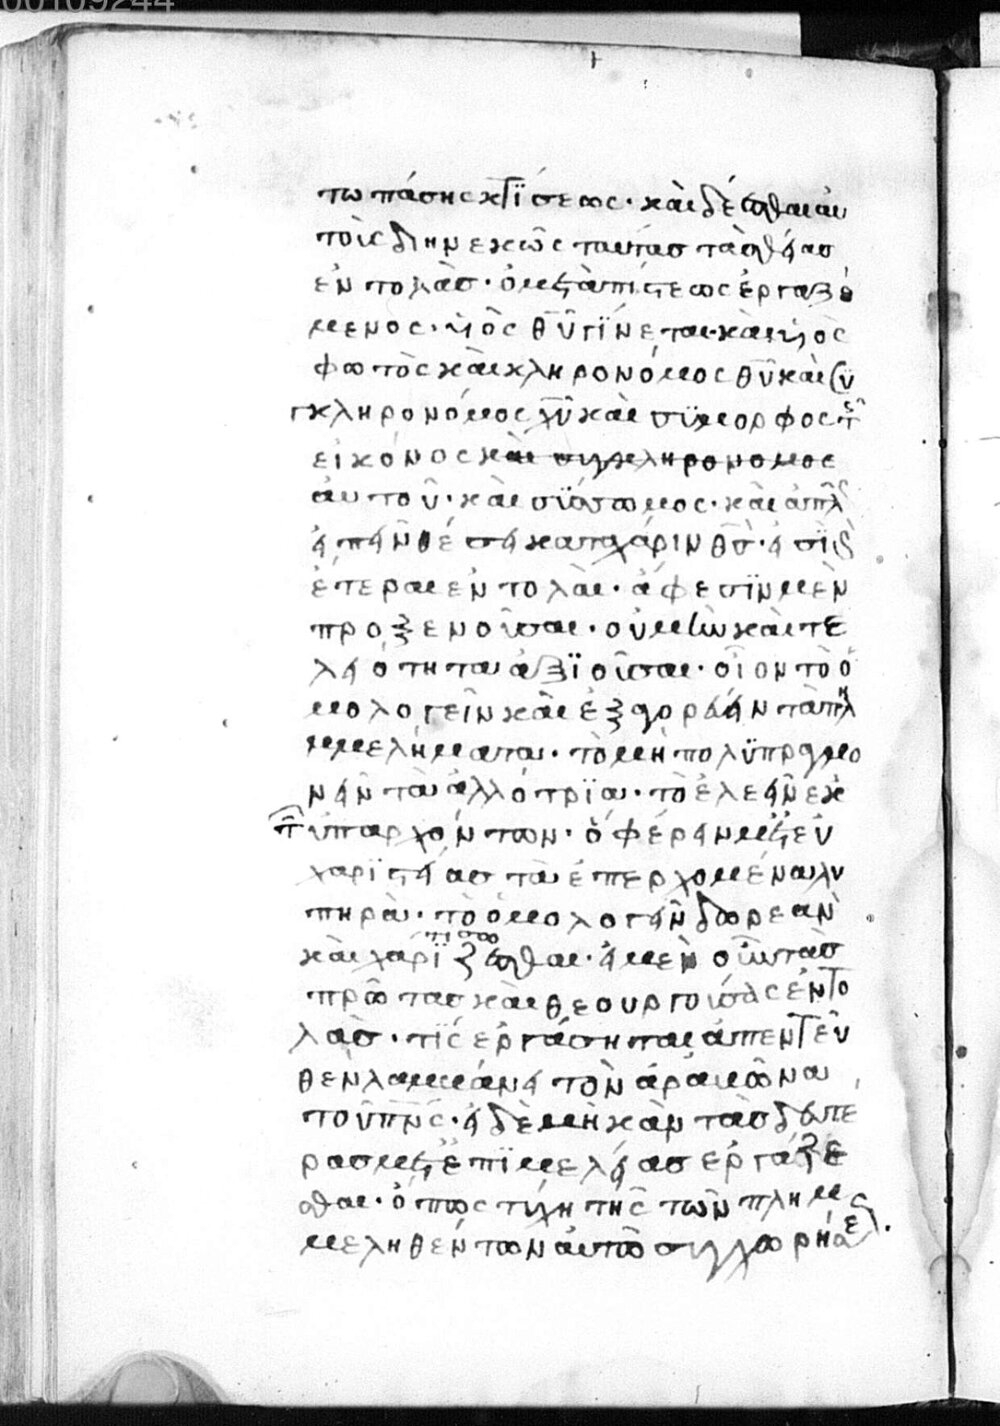 00109244
τω πάσης κτϊσεως· καὶ δέεσθαι αὐ
τοῖς διηνεκῶς ταύτασ τὰσ θείασ
ἐντολὰσ· ὁ μετὰ πίστεως ἐργαζό
μενος· υἱὸς θῦ γίνεται· καὶ υἱὸς
φωτὸς καὶ κληρονόμος θῦ καὶ συ
γκληρονόμος χῦ καὶ σύμορφος τῆς
εἰκόνος καὶ συγκληρονομος
αὐτοῦ· καὶ σύσσωμος· καὶ ἁπλῶς
εἰπεῖν θέσει κατὰ χάριν θσ· εἰσὶ δὲ
ἕτεραι ἐντολαὶ· ἄφεσιν μὲν
προξενοῦσαι· οὐ μὴν καὶ τε
λειότητα ἀξιοῦσαι· οἷον τὸ ὁ
μολογεῖν καὶ ἐξαγορεύειν τὰ πλη
μμελήματα· τὸ μὴ πολυπραγμο
νεῖν τὰ ἀλλότρια· τὸ ἐλεεῖν ἐκ
τῶν ὑπαρχόντων· ὁ φέρειν μετ εὐ
χαριστείασ τὰ ἐπερχόμενα λυ
πηρὰ· τὸ ὁμολογεῖν δωρεὰν
καὶ χάρϊτι σώζεσθαι· εἰ μὲν οὖν τὰσ
πρώτασ καὶ θεουργοὺσας ἐντο
λὰσ· τίς ἐργάσηται ἅπεντεῦ
θεν λαμμάνει τὸν ἀραμῶνα
τοῦ πνς· εἰ δὲ μὴ κἂν τὰσ δευτέ
ρασ μετ ἐπϊμελείασ ἐργάζε
σθαι· ὅπως τύχη τῆς τῶν πλημ
μεληθέντων αὐτῶ συγχωρήσε